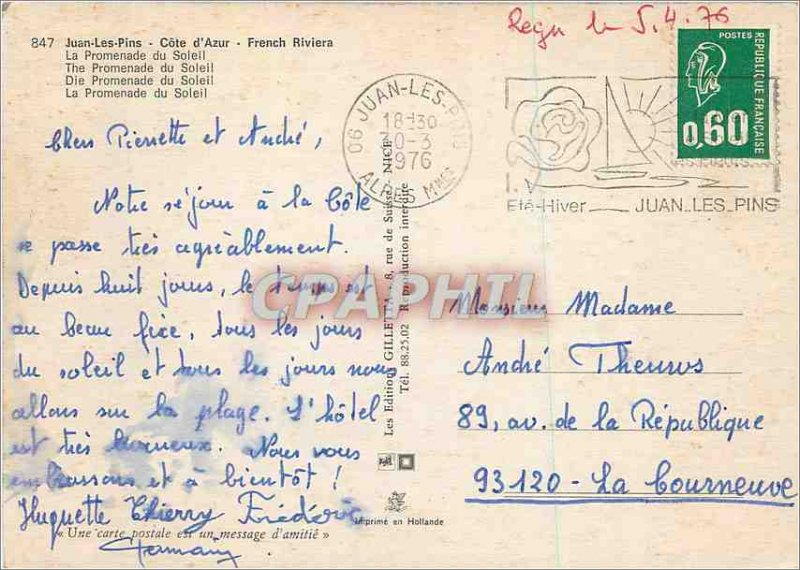 Reçu le 5.4.76
847 Juan-Les-Pins - Côte d'Azur - French Riviera
La Promenade du Soleil
The Promenade du Soleil
Die Promenade du Soleil
La Promenade du Soleil
06 JUAN-LES-PINS
18-30
30-3
1976
ALPES Mmes
POSTES
REPUBLIQUE FRANÇAISE
0,60
Eté-Hiver JUAN_LES_PINS
Chers Pierrette et André,
Notre séjour à la Côte
se passe très agréablement.
Depuis huit jours, le temps est
au beau fixe, tous les jours
du soleil et tous les jours nous
allons sur la plage. L'hôtel
est très luxueux. Nous vous
embrassons et à bientôt !
Huguette Thierry Frédéric
Germain
« Une carte postale est un message d'amitié »
Les Editions GILLETTA - 8, rue de Suisse - NICE
Tél. 88.25.02 Reproduction interdite
Imprimé en Hollande
CPAPHIL
Monsieur Madame
André Theuws
89, av. de la République
93120 - La Courneuve